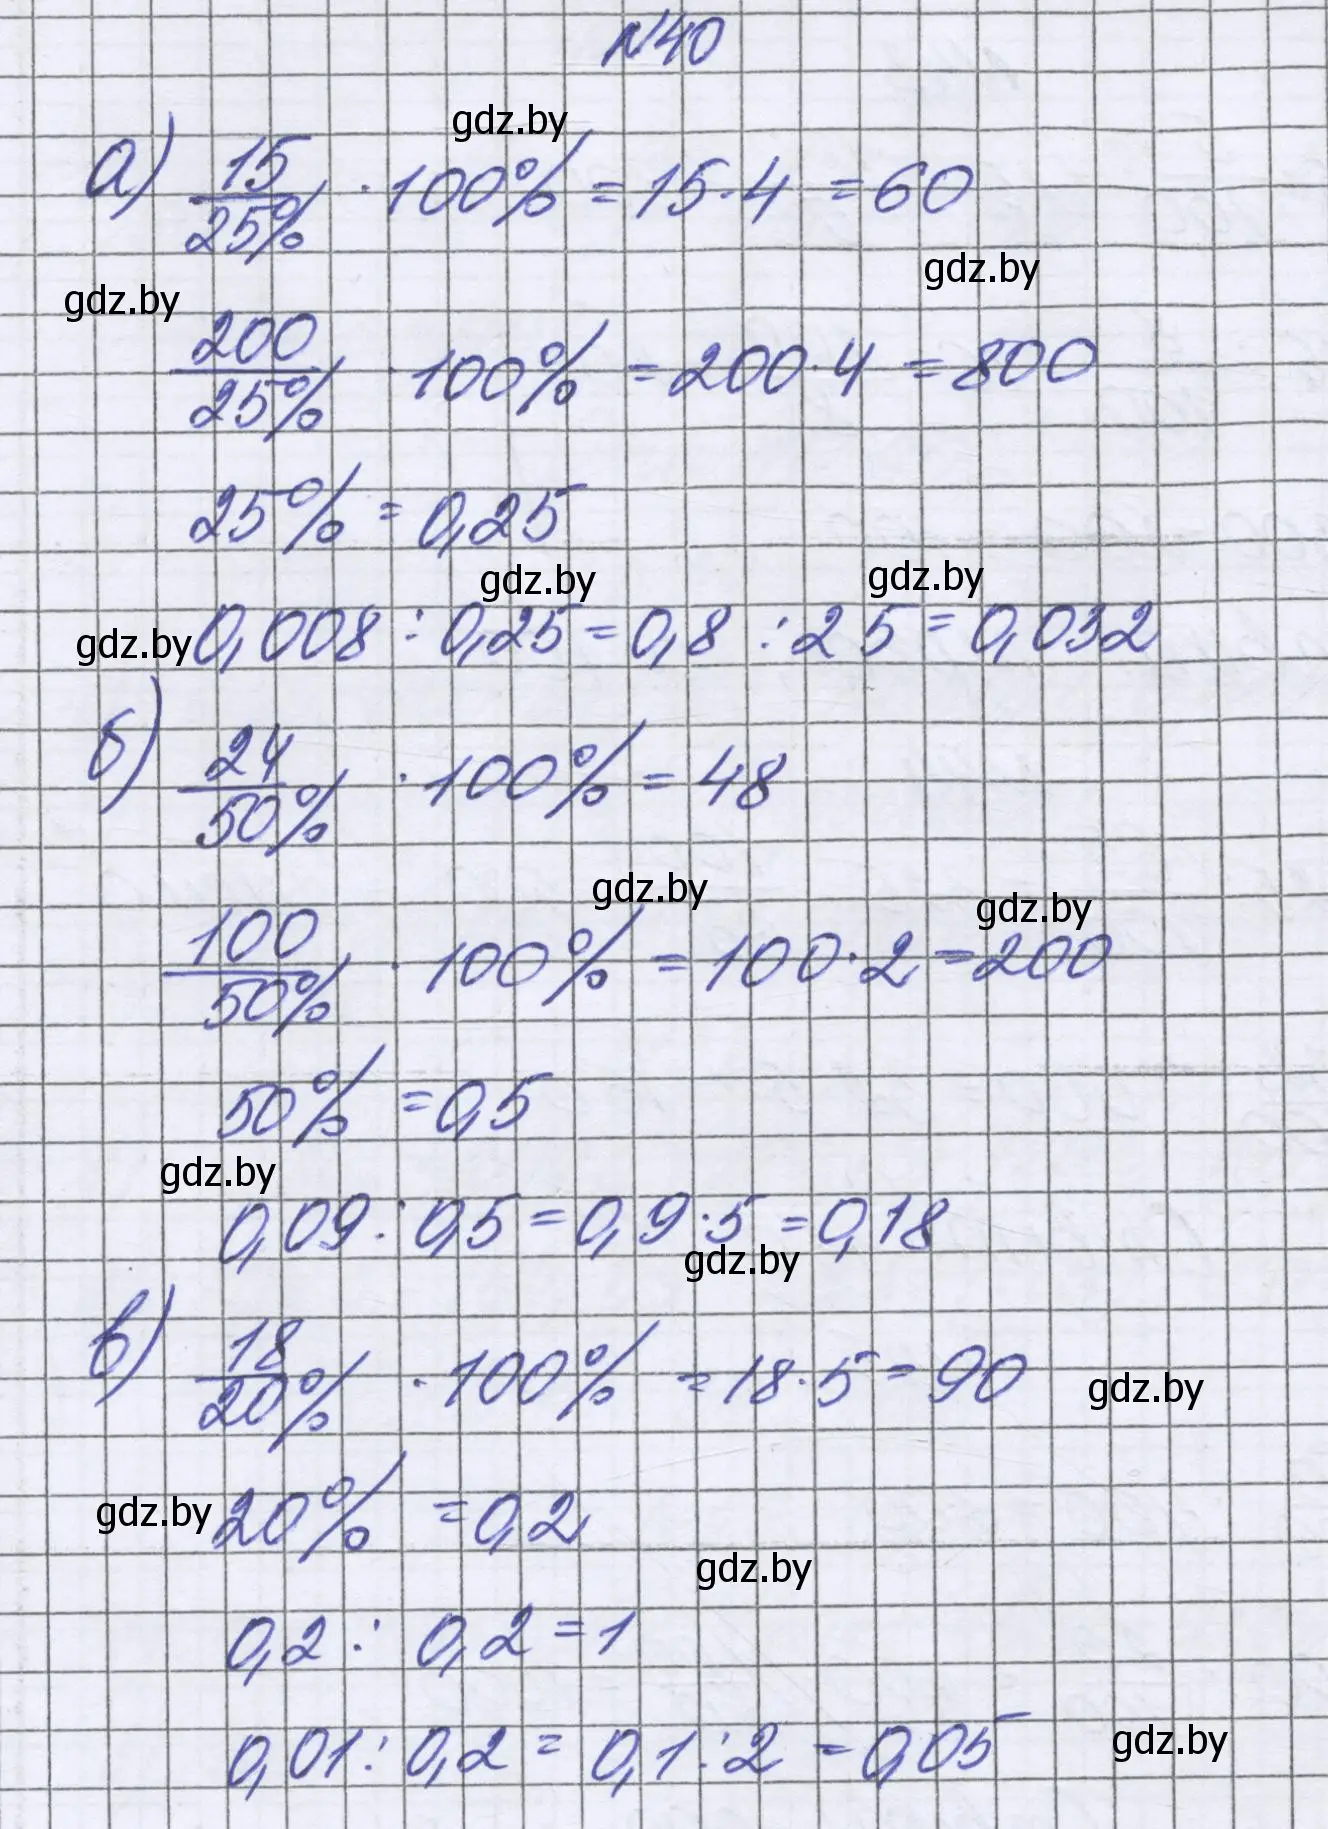 №40
gdz.by
а) 15/25% · 100% = 15 · 4 = 60
gdz.by
gdz.by
200/25% · 100% = 200 · 4 = 800
25% = 0,25
gdz.by gdz.by
gdz.by 0,008 : 0,25 = 0,8 : 25 = 0,032
б) 24/50% · 100% = 48
gdz.by gdz.by
100/50% · 100% = 100 · 2 = 200
50% = 0,5
gdz.by
0,09 : 0,5 = 0,9 : 5 = 0,18
gdz.by
в) 18/20% · 100% = 18 · 5 = 90
gdz.by
gdz.by 20% = 0,2
gdz.by
0,2 : 0,2 = 1
0,01 : 0,2 = 0,1 : 2 = 0,05
gdz.by